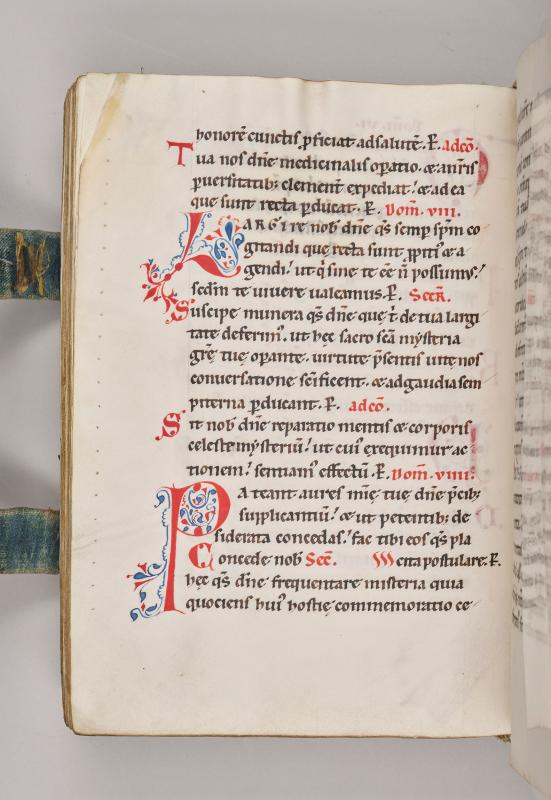 honorē cunctis ꝓficiat ad salutē. P̲. adcō.
Tua nos dn̄e medicinalis oꝑatio. & a nr̄is
ꝑuersitatib; clement̄ expediat! & ad ea
que sunt recta ꝑducat. P̲. Dom̄. viii.
LARGIRE nob̄ dn̄e q̄s semꝑ sp̄m co
gitandi que recta sunt ꝓpiti᷒ & a
gendi! ut q̇ sine te ēē n̄ possumus!
sedm̄ te uiuere ualeamus. P̲. Secr̄.
Suscipe munera q̄s dn̄e que t̄ de tua largi
tate deferim᷒. ut hęc sacro scā mysteria
grē tuę oꝑante uirtute p̄sentis uitę nos
conuersatione sc̄ificent. & ad gaudia sem
piterna ꝑducant. P̲. adcō.
Sit nob̄ dn̄e reparatio mentis & corporis
celeste mysteriū! ut cui᷒ exequimur ac
tionem! sentiam᷒ effectū. P̲. Dom̄. viiii.
Pateant aures mīe tuę dn̄e p̄cib;
supplicantiū! & ut petentib; de
siderata concedas! fac tibi eos q̄s pla
cita postulare. P̲.
Concede nob̄ Sec̄.
hęc q̄s dn̄e frequentare misteria quia
quociens hui᷒ hostię commemoratio ce